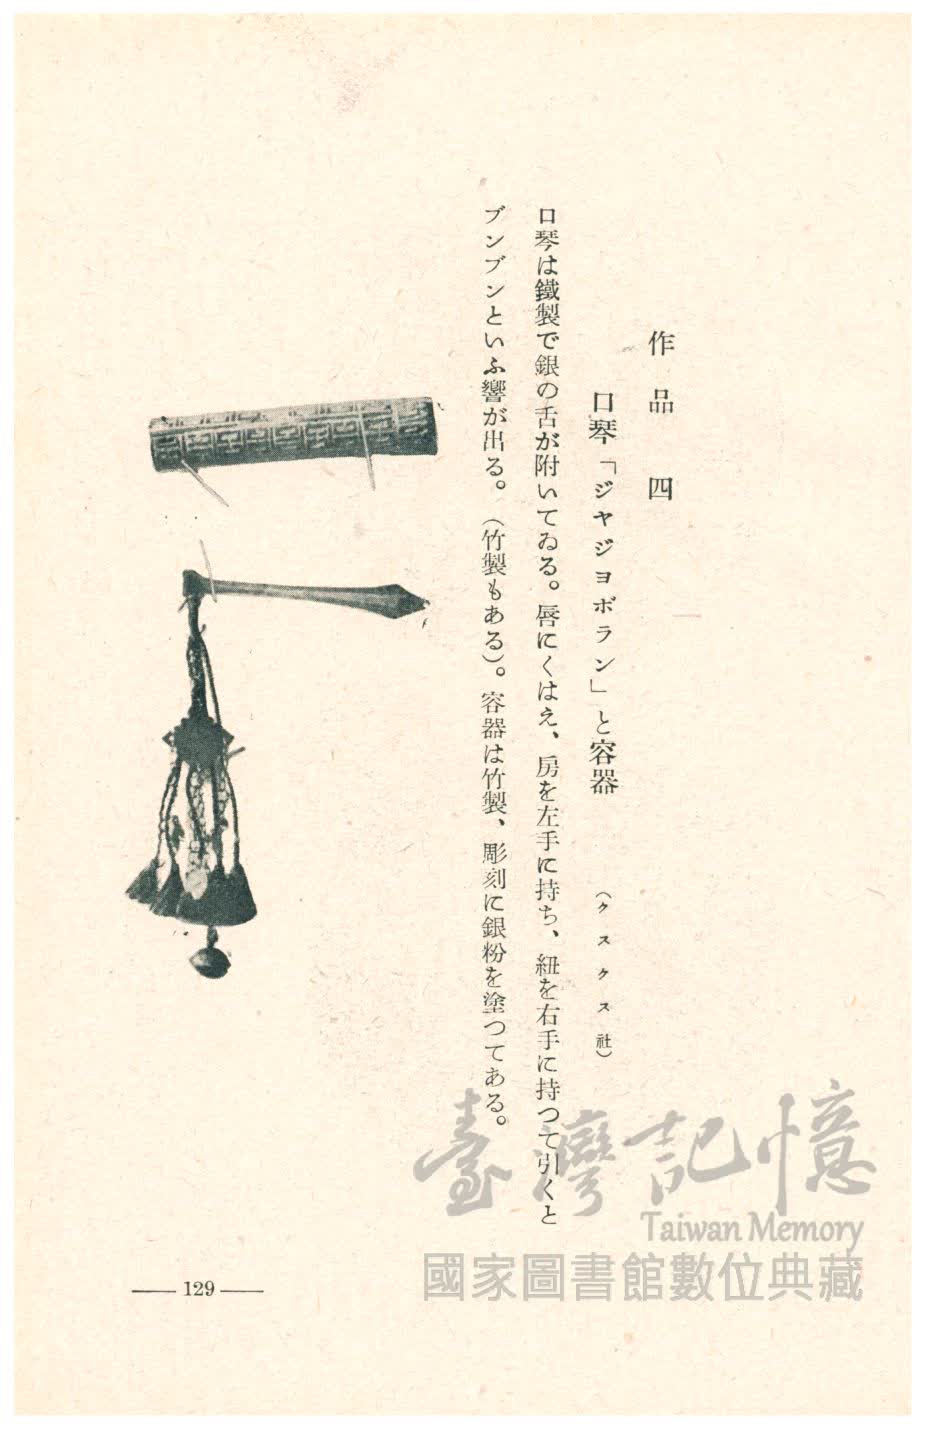 作品四
口琴「ジヤジヨボラン」と容器
（クスクス社）
口琴は鐵製で銀の舌が附いてゐる。唇にくはえ、房を左手に持ち、紐を右手に持つて引くと
ブンブンといふ響が出る。（竹製もある）。容器は竹製、彫刻に銀粉を塗つてある。
129
臺灣記憶
Taiwan Memory
國家圖書館數位典藏